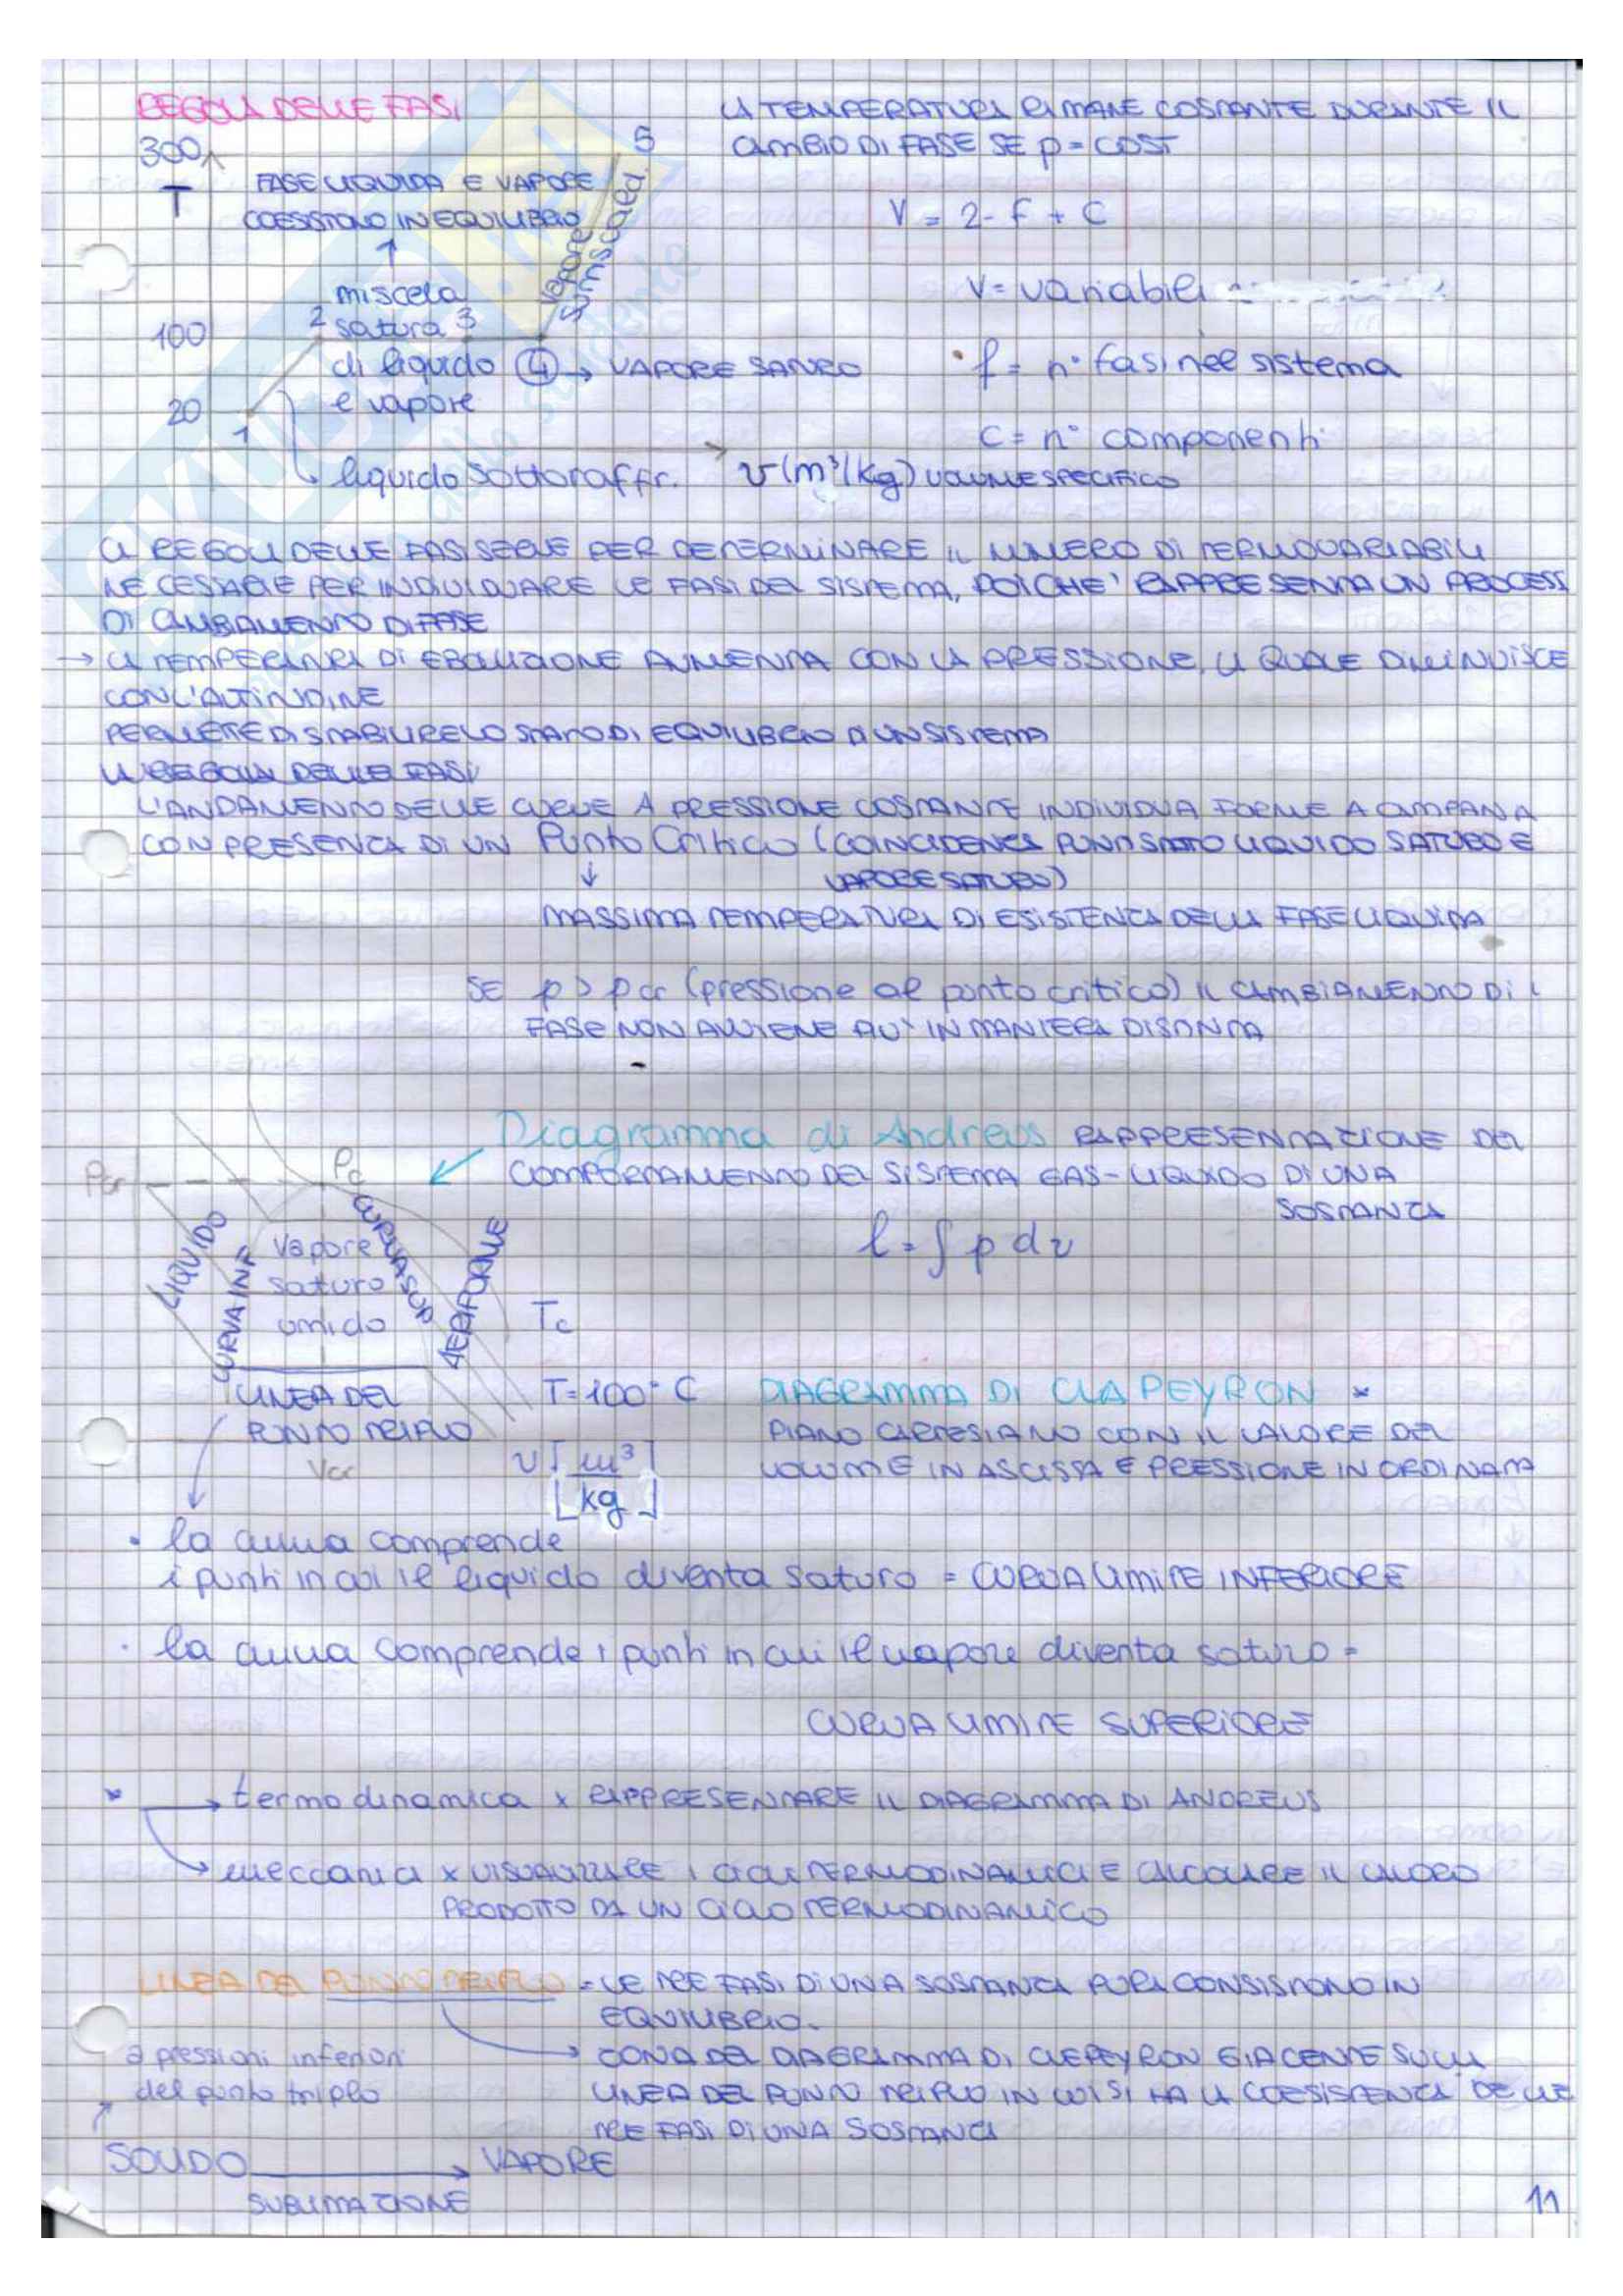 REGOLA DELLE FASI
LA TEMPERATURA RIMANE COSTANTE DURANTE IL
CAMBIO DI FASE SE p = COST
300
T
5
FASE LIQUIDA E VAPORE
COESISTONO IN EQUILIBRIO
vapore
surriscald.
V = 2 - F + C
miscela
2 satura 3
V = variabili
100
di liquido 4 → VAPORE SATURO
f = n° fasi nel sistema
e vapore
20
1
C = n° componenti
liquido sottoraffr.
v (m³/kg) VOLUME SPECIFICO
LA REGOLA DELLE FASI SERVE PER DETERMINARE IL NUMERO DI TERMOVARIABILI
NECESSARIE PER INDIVIDUARE LE FASI DEL SISTEMA, POICHE' RAPPRESENTA UN PROCESSO
DI CAMBIAMENTO DI FASE
→ LA TEMPERATURA DI EBOLLIZIONE AUMENTA CON LA PRESSIONE, LA QUALE DIMINUISCE
CON L'ALTITUDINE
PERMETTE DI STABILIRE LO STATO DI EQUILIBRIO DI UN SISTEMA
LA REGOLA DELLE FASI
L'ANDAMENTO DELLE CURVE A PRESSIONE COSTANTE INDIVIDUA FORME A CAMPANA
CON PRESENZA DI UN Punto Critico (COINCIDENZA PUNTI STATO LIQUIDO SATURO E
VAPORE SATURO)
↓
MASSIMA TEMPERATURA DI ESISTENZA DELLA FASE LIQUIDA
SE p > pcr (pressione al punto critico) IL CAMBIAMENTO DI
FASE NON AVVIENE PIU' IN MANIERA DISTINTA
Diagramma di Andrews RAPPRESENTAZIONE DEL
COMPORTAMENTO DEL SISTEMA GAS-LIQUIDO DI UNA
SOSTANZA
Pcr
Pc
LIQUIDO
CURVA INF
Vapore
saturo
umido
CURVA SUP
AERIFORME
l = ∫ p dv
Tc
LINEA DEL
PUNTO TRIPLO
Vcr
T = 100° C
v [m³/kg]
DIAGRAMMA DI CLAPEYRON *
PIANO CARTESIANO CON IL VALORE DEL
VOLUME IN ASCISSA E PRESSIONE IN ORDINATA
• la curva comprende
i punti in cui il liquido diventa saturo = CURVA LIMITE INFERIORE
• la curva comprende i punti in cui il vapore diventa saturo =
CURVA LIMITE SUPERIORE
* → termodinamica x RAPPRESENTARE IL DIAGRAMMA DI ANDREWS
→ meccanica x VISUALIZZARE I CICLI TERMODINAMICI E CALCOLARE IL LAVORO
PRODOTTO DA UN CICLO TERMODINAMICO
LINEA DEL PUNTO TRIPLO = LE TRE FASI DI UNA SOSTANZA PURA CONSISTONO IN
EQUILIBRIO.
→ ZONA DEL DIAGRAMMA DI CLEPEYRON GIACENTE SULLA
LINEA DEL PUNTO TRIPLO IN CUI SI HA LA COESISTENZA DELLE
TRE FASI DI UNA SOSTANZA
a pressioni inferiori
del punto triplo
SOLIDO → VAPORE
SUBLIMAZIONE
11